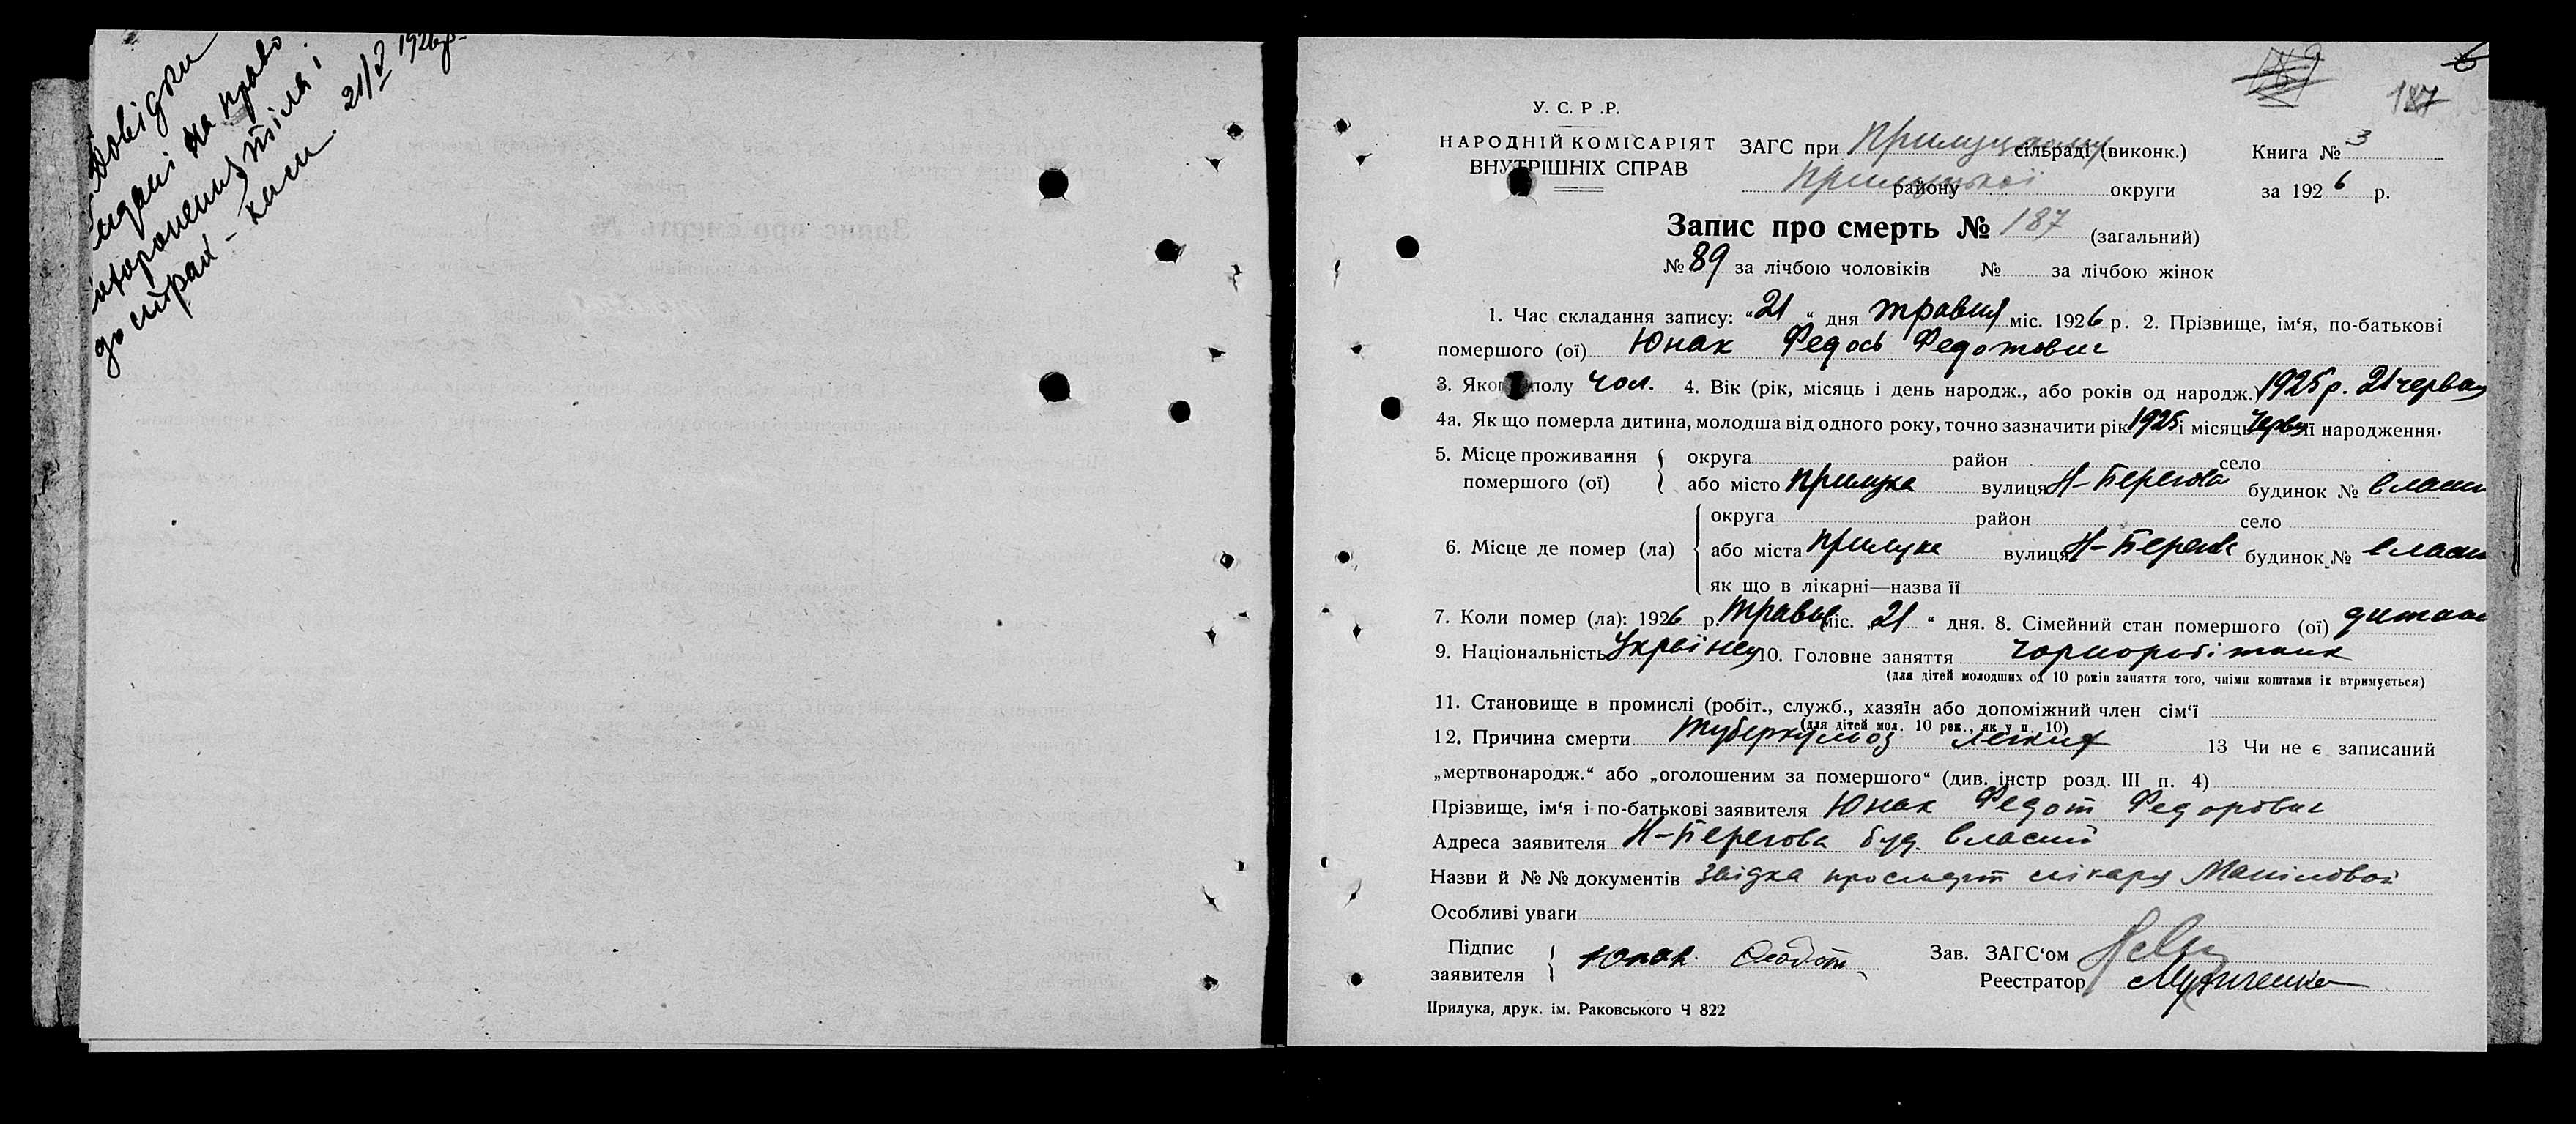 Довідки
видані на право
похоронення тіла і
до страх-каси 21/V 1926р.
6
187
У. С. Р. Р.
НАРОДНІЙ КОМІСАРІЯТ
ВНУТРІШНІХ СПРАВ
ЗАГС при Прилуцькому сільраді (виконк.)
Прилуцької району округи
Книга № 3
за 1926 р.
Запис про смерть № 187 (загальний)
№ 89 за лічбою чоловіків № за лічбою жінок
1. Час складання запису: "21" дня травня міс. 1926 р. 2. Прізвище, ім'я, по-батькові
помершого (ої) Юнак Федось Федотович
3. Якого полу чол. 4. Вік (рік, місяць і день народж., або років од народж.) 1925 р. 21 червня
4а. Як що померла дитина, молодша від одного року, точно зазначити рік 1925 і місяць червня її народження.
5. Місце проживання помершого (ої) { округа район село
або місто Прилука вулиця Н-Берегова будинок № власн
6. Місце де помер (ла) { округа район село
або міста Прилука вулиця Н-Берегов будинок № власн
як що в лікарні—назва її
7. Коли помер (ла): 1926 р. травня міс. „21" дня. 8. Сімейний стан помершого (ої) дитина
9. Національність Українец 10. Головне заняття Чорноробітник
(для дітей молодших од 10 років заняття того, чиїми коштами їх втримується)
11. Становище в промислі (робіт., служб., хазяїн або допоміжний член сім'ї
(для дітей мол. 10 рок., як у п. 10)
12. Причина смерти Туберкульоз легких 13 Чи не є записаний
„мертвонародж." або „оголошеним за помершого" (див. інстр розд. III п. 4)
Прізвище, ім'я і по-батькові заявителя Юнак Федот Федорович
Адреса заявителя Н-Берегова буд. власний
Назви й №№ документів Звідка про смерт лікаря Манілової
Особливі уваги
Підпис заявителя { Юнак Федот
Зав. ЗАГС'ом
Реестратор
Прилука, друк. ім. Раковського Ч 822